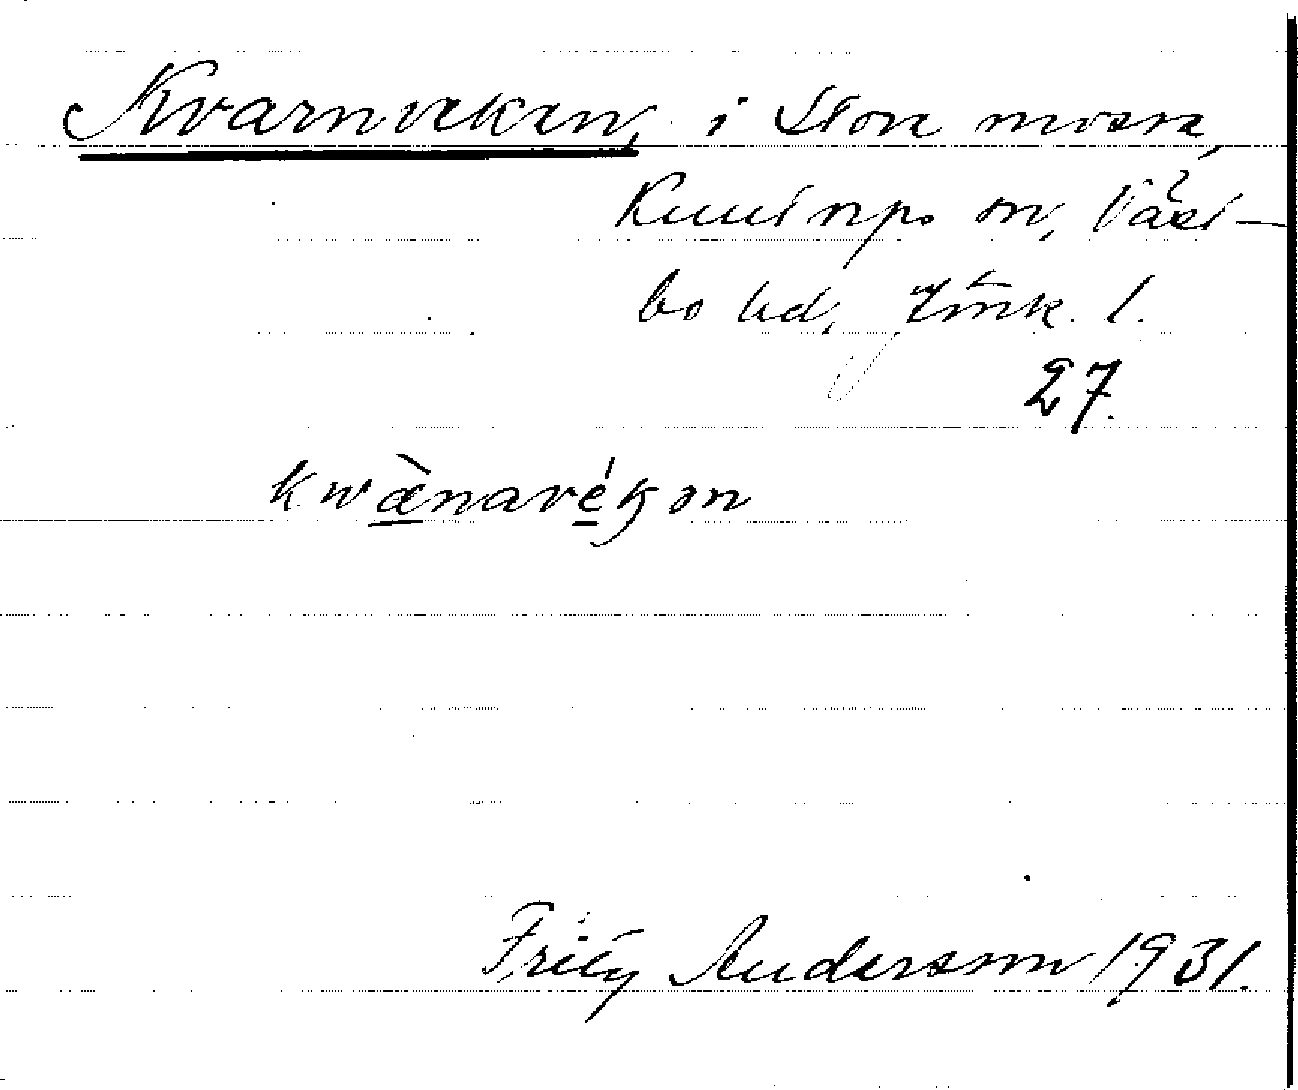 Kvarnveken, i Store mosse,
Kulltorps sn, Väst-
bo hd, Jönk. l.
27.
kwànavékən
Fritz Anderson 1931.